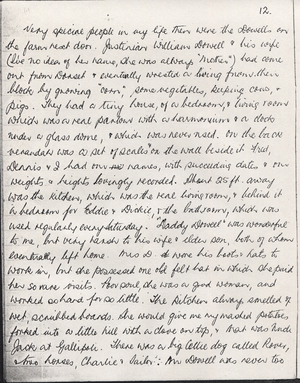 12.
Very special people in my life then were the Dowells on
the farm next door. Justinian Williams Dowell & his wife
(I've no idea of his name, she was always "Mother") had come
out from Dorset & eventually wrested a living from their
block by growing corn, some vegetables, keeping cows, &
pigs. They had a tiny house, of a bedroom, & living room
which was a real parlour with a harmonium & a clock
under a glass dome, & which was never used. On the back
verandah was a set of scales on the wall beside it Fred,
Dennis & I had our names, with succeeding dates, & our
weights & heights lovingly recorded. About 25 ft. away
was the kitchen, which was the real living room, & behind it
a bedroom for Eddie & Dickie, & the bathroom, which was
used regularly every Saturday. Daddy Dowell was wonderful
to me, but very harsh to his wife & elder son, both of whom
eventually left home. Mrs D. wore his boots & hats to
work in, but she possessed one old felt hat in which she paid
her so rare visits. Poor soul, she was a good woman, and
worked so hard for so little. The kitchen always smelled of
wet, scrubbed boards. She would give me my mashed potatoes,
formed into a little hill with a clove on top, & that was Uncle
Jack at Gallipoli. There was a big Collie dog called Rover,
& two horses, Charlie & Sailor. Mr Dowell was never too